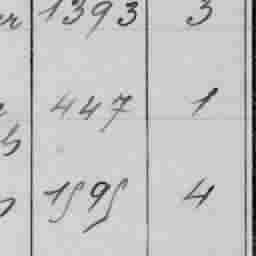 1393 3
447 1
1595 4